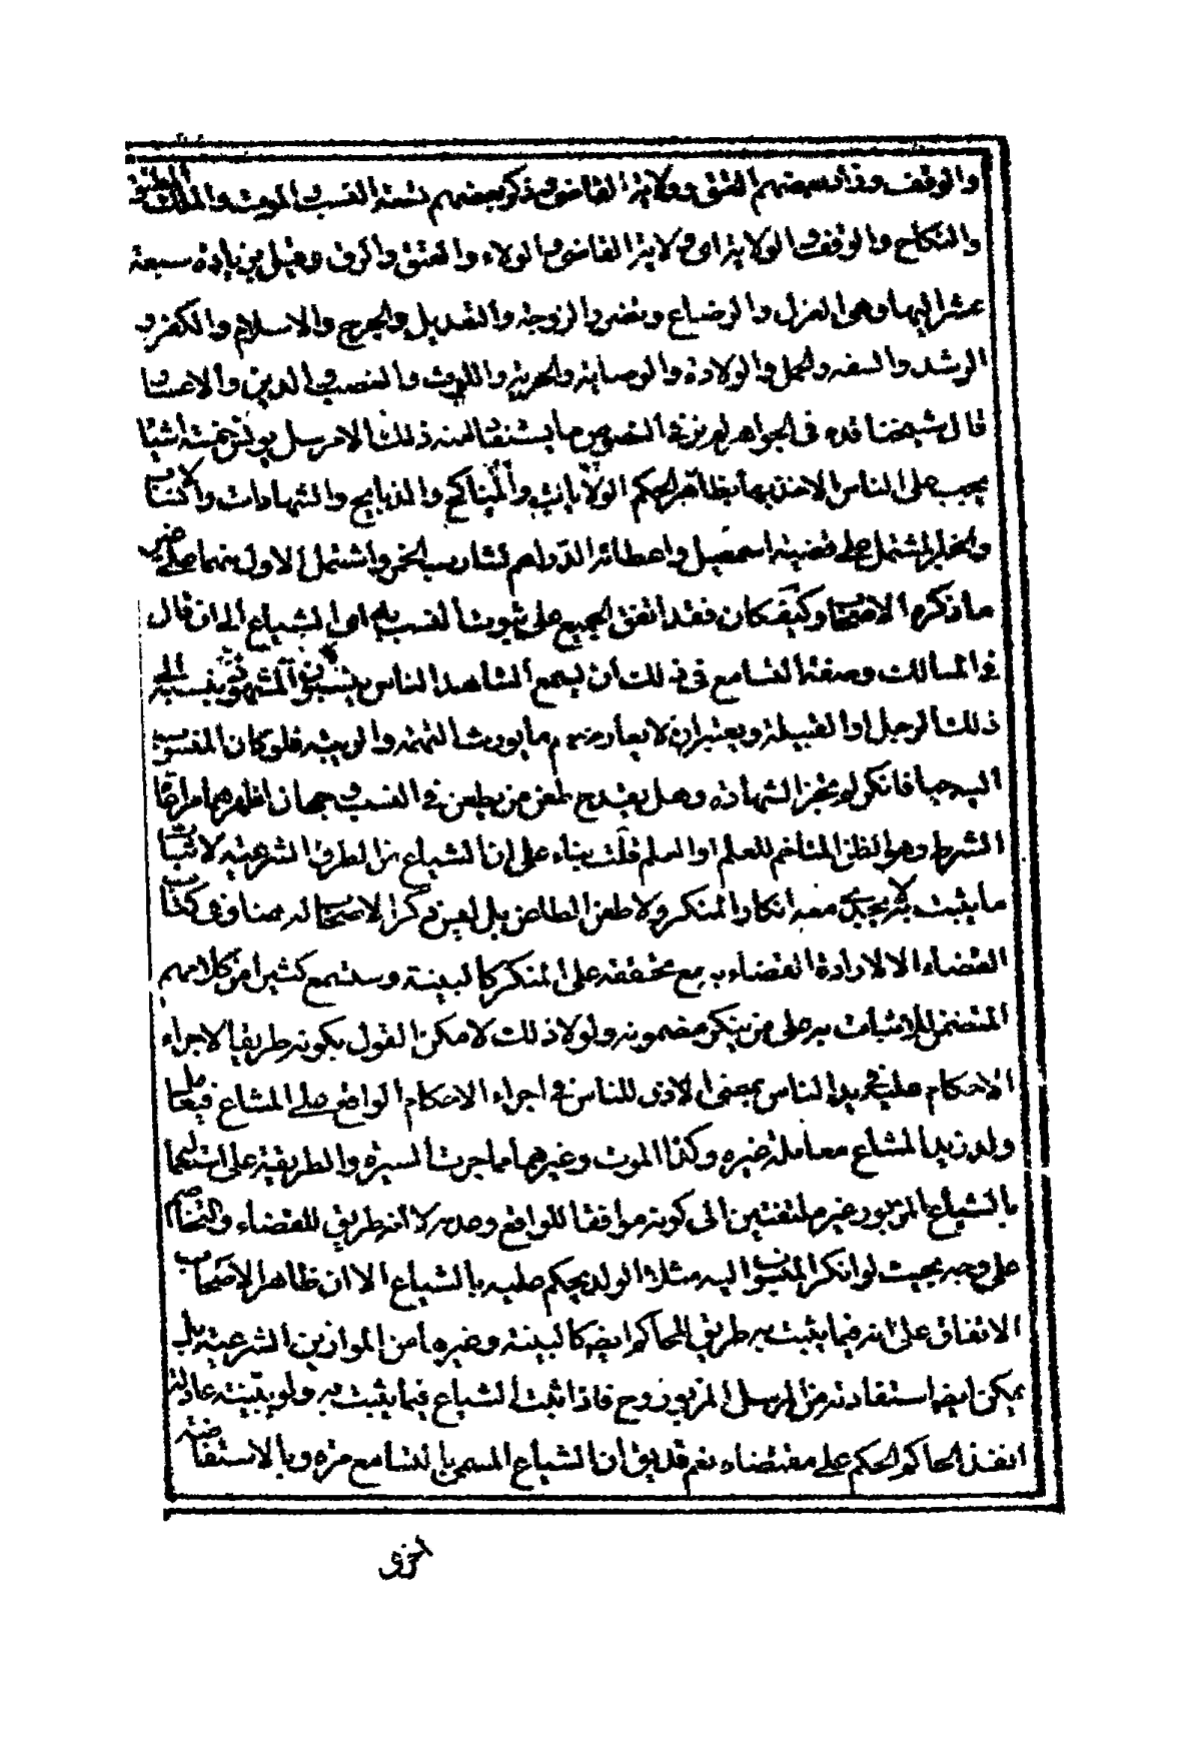 والوقف وزاد بعضهم العتق وولاية القاضي وذكر بعضهم تسعة النسب والموت والملك المطلق
والنكاح والوقف والولاية اى ولاية القاضي والولاء والعتق والرق وقيل بزيادة سبعة
عشر اليها وهي العزل والرضاع وتضرر الزوجة والتعديل والجرح والاسلام والكفر و
الرشد والسفه والحمل والولادة والوصاية والحرية واللوث والغصب والدين والاعسار
قال شيخنا قده في الجواهر لم نعثر في النصوص ما يستفاد منه ذلك الا مرسل يونس خمسة اشيا
يجب على الناس الاخذ بها بظاهر الحكم الولايات والمناكح والذبايح والشهادات والانساب
والخبر المشتمل على قضية اسمعيل واعطائه الدراهم لشارب الخمر واشتمل الاول منهما على غير
ما ذكره الاصحاب وكيف كان فقد اتفق الجميع على ثبوت النسب به اى الشياع الى ان قال
في المسالك وصفة التسامع في ذلك ان يسمع الشاهد الناس ينسبون المشهود بنسبه الى
ذلك الرجل او القبيلة ويعتبر ان لا يعارضهم ما يورث التهمة والريبة فلو كان المنسوب
اليه حيا فانكر لم تجز الشهادة وهل يقدح لمن يطعن في النسب وجهان اظهرهما مراعاة
الشرط وهو الظن المتاخم للعلم او العلم قلت بناء على ان الشياع من الطرق الشرعية لاثبات
ما يثبت به لا يجدى معه انكار المنكر ولا طعن الطاعن بل ليس ذكر الاصحاب له هنا وفي كتاب
القضاء الا لارادة القضاء به مع تحققه على المنكر كالبينة وستسمع كثيرا من كلامهم
المتضمن للاثبات به على من ينكر مضمونه ولولا ذلك لامكن القول بكونه طريقا لاجراء
الاحكام عليه في يد الناس بمعنى الاذن للناس في اجراء الاحكام الواقع على المشاع فيعامل
ولد زيد المشاع معاملة غيره وكذا الموت وغيرهما مما جرت السيرة والطريقة على استعمال
بالشياع المزبور غير ملتفتين الى كونه موافقا للواقع وعدمه لا انه طريق للقضاء والتخاصم
على وجه بحيث لو انكر المنسوب اليه مثلا الولد يحكم عليه بالشياع الا ان ظاهر الاصحاب
الاتفاق على انه فيما يثبت به طريق للحاكم ايضا كالبينة وغيرها من الموازين الشرعية بل
يمكن ايضا استفادته من المرسل المزبور وح فاذا ثبت الشياع فيما يثبت به ولو ببينة عادلة
انفذ الحاكم الحكم على مقتضاه نعم قد يق ان الشياع المسمى بالتسامع مرة وبالاستفاضة
اخرى